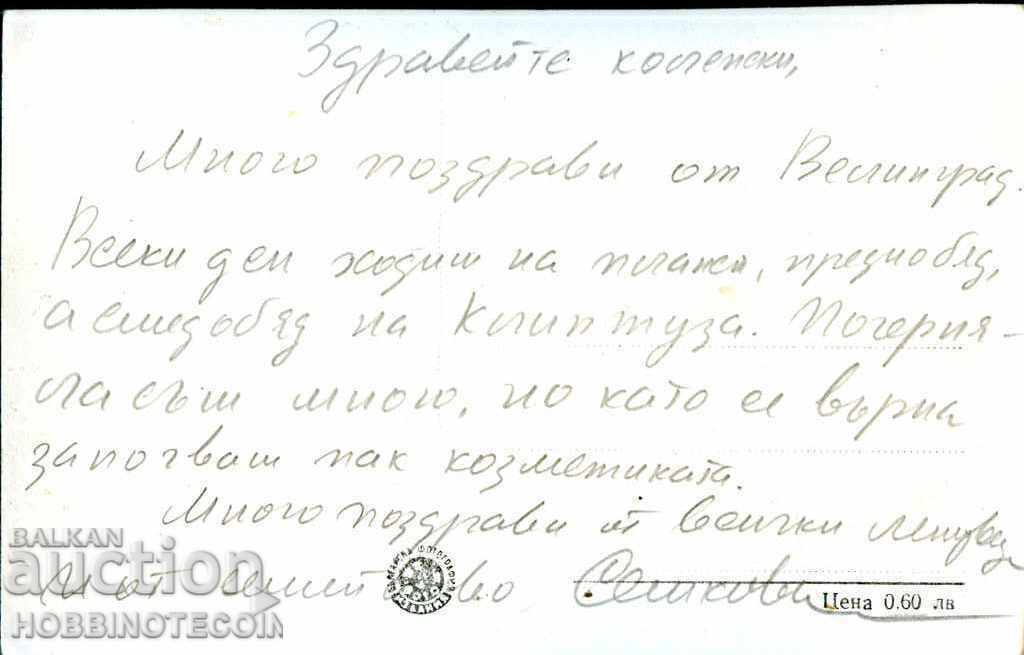 Здравейте колежки,
Много поздрави от Велинград.
Всеки ден ходим на плажа, преднобяд,
а следобяд на Клиптуза. Почерня-
ла съм много, но като се върна
започвам пак козметиката.
Много поздрави от всички
и от
BALKAN
auction
HOBBINOTECOIN
Цена 0.60 лв